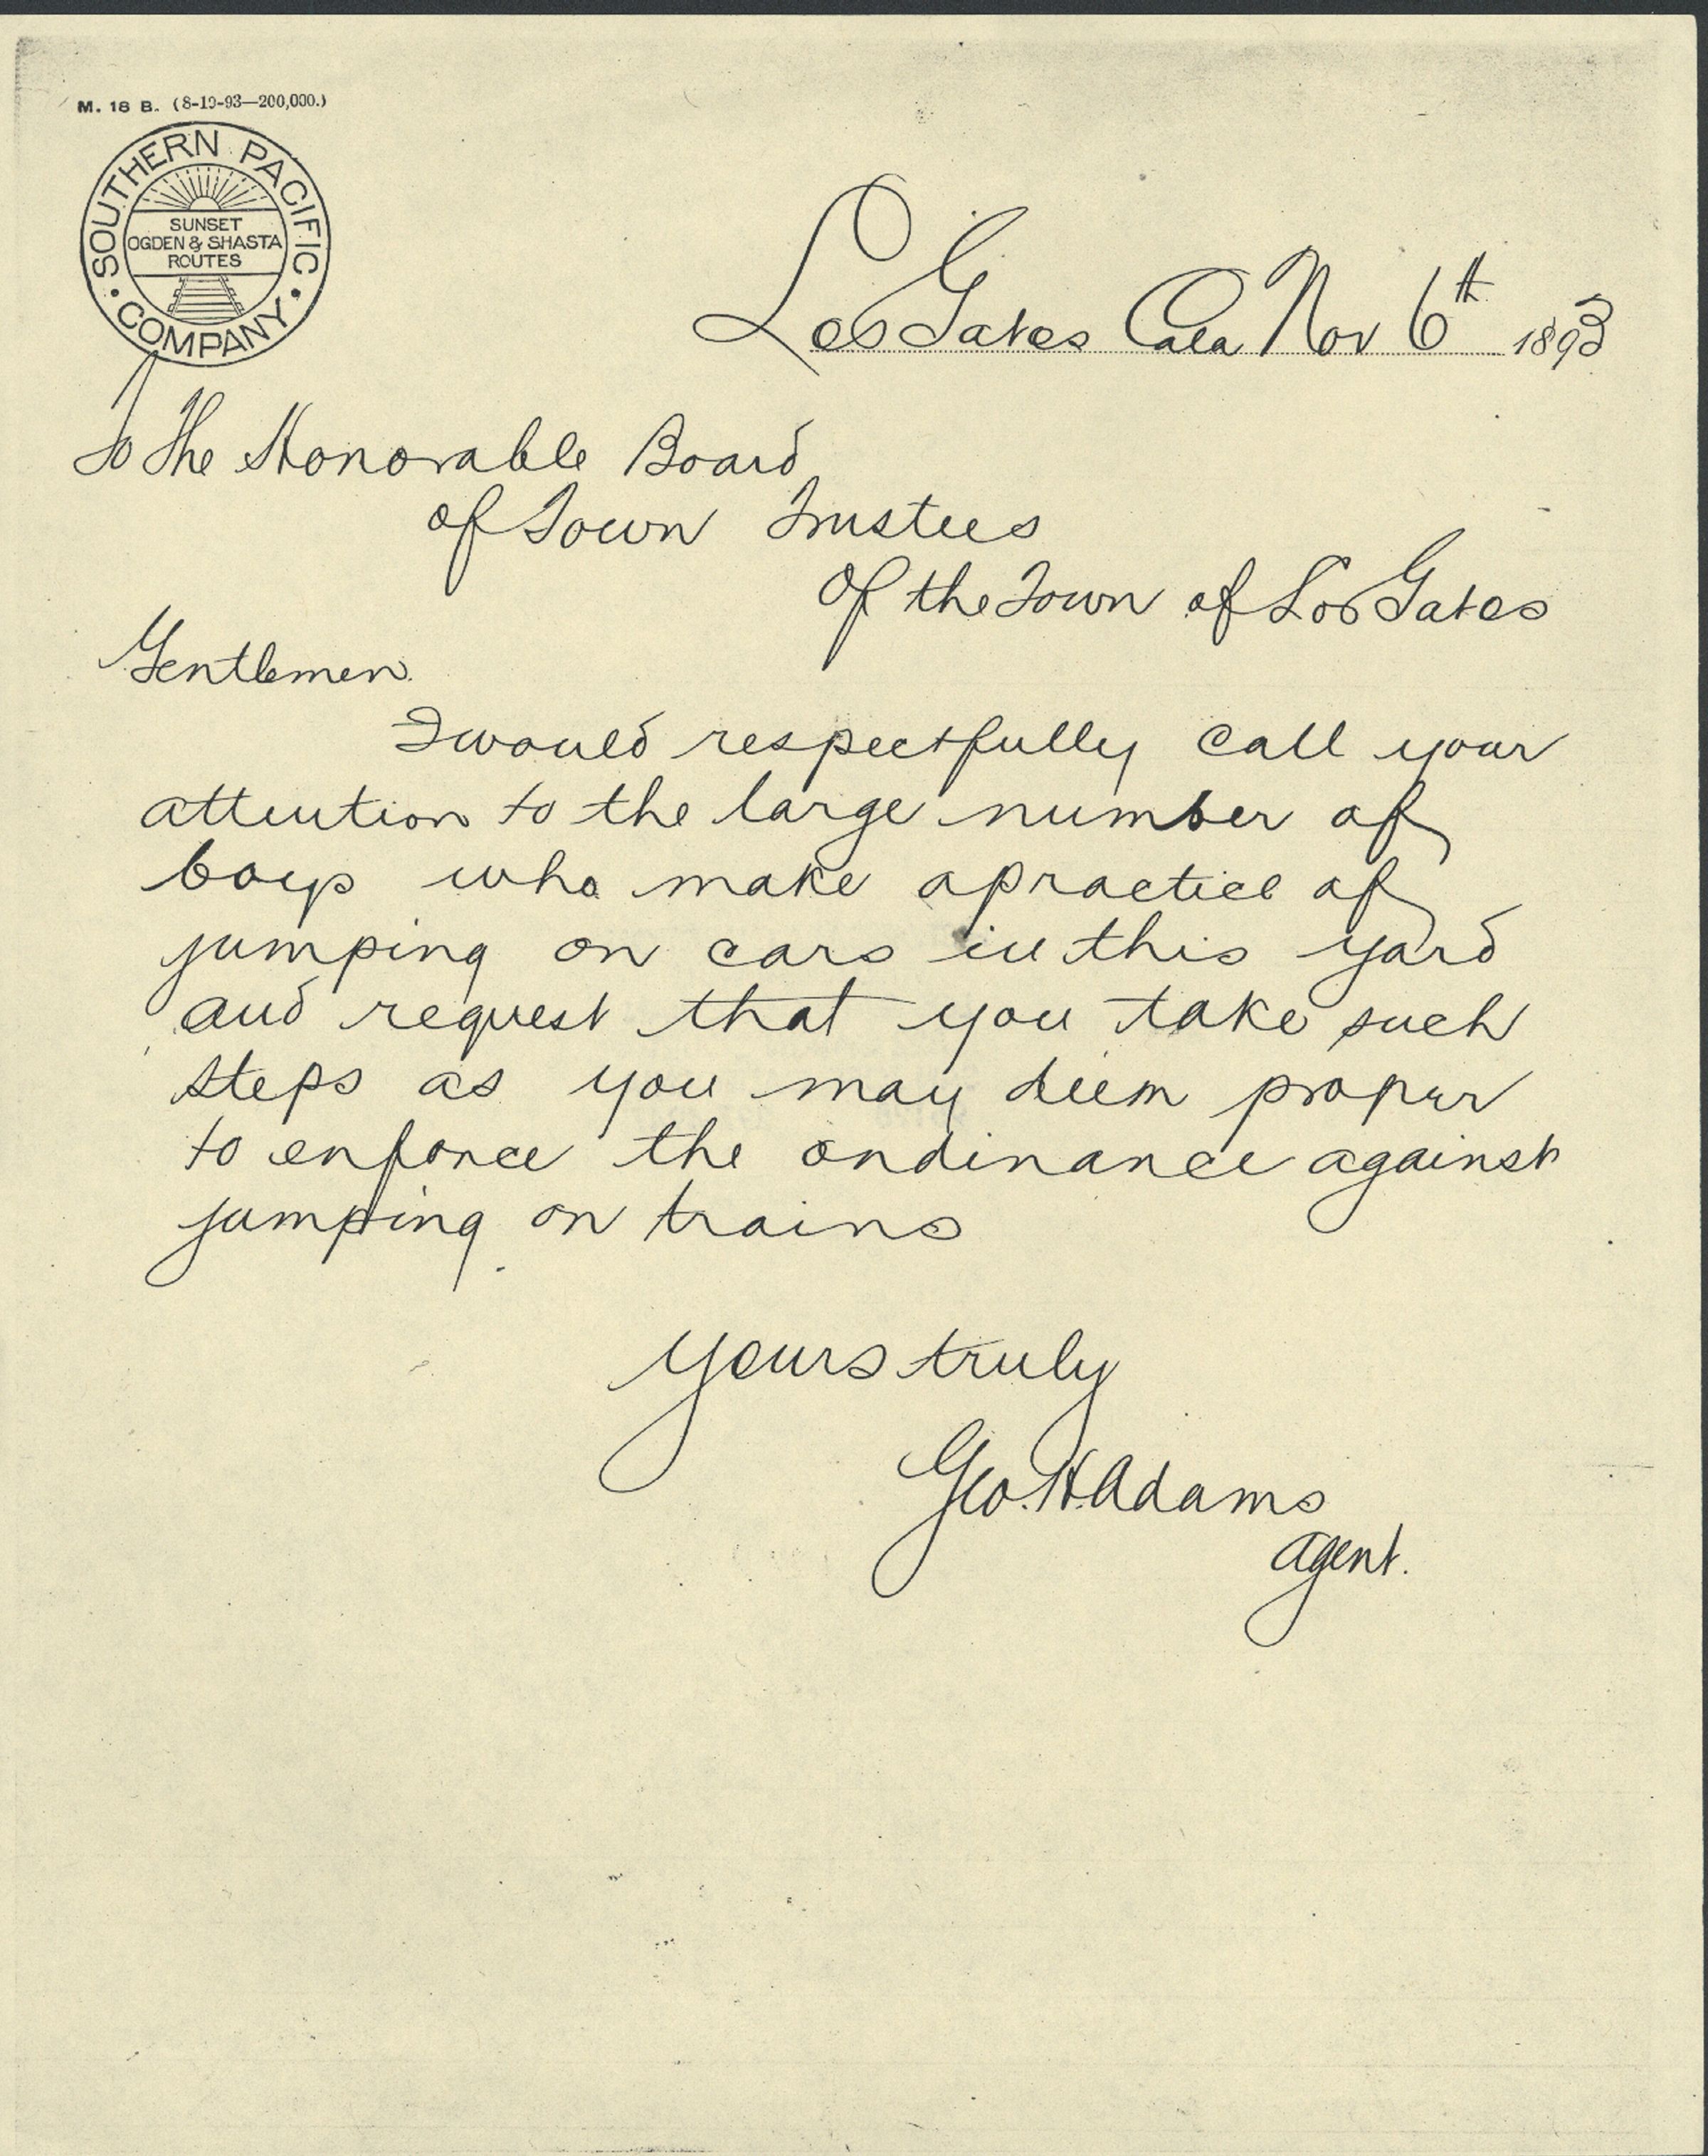 M. 18 B. (8-19-93—200,000.)
SOUTHERN PACIFIC
SUNSET
OGDEN & SHASTA
ROUTES
COMPANY
Los Gatos Cala Nov 6th 1893
To The Honorable Board
of Town Trustees
Of the Town of Los Gatos
Gentlemen.
I would respectfully call your
attention to the large number of
boys who make a practice of
jumping on cars in this yard
and request that you take such
steps as you may deem proper
to enforce the ordinance against
jumping on trains
Yours truly
Geo. H. Adams
Agent.